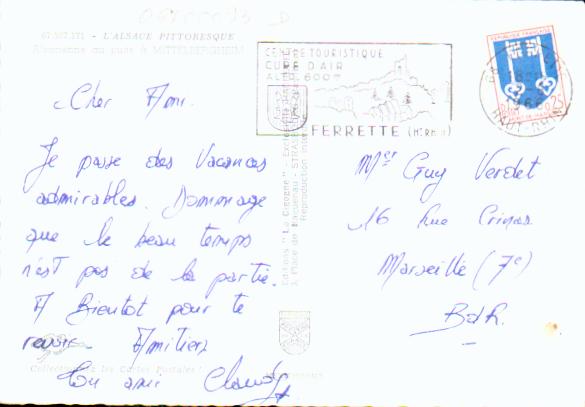 67.507.171 - L'ALSACE PITTORESQUE
Alsacienne au puits à MITTELBERGHEIM
CENTRE TOURISTIQUE
CURE D'AIR
ALT. 600m
FERRETTE (Ht RHIN)
REPUBLIQUE FRANÇAISE
0,25
1966
HAUT-RHIN
Cher Ami.
Je passe des Vacances
admirables. Dommage
que le beau temps
n'est pas de la partie.
A Bientot pour te
revoir. Amitiers
Ton ami Claude
Mr Guy Verdet
16 Rue Crinas
Marseille (7e)
BdR.
Editions "La Cigogne"
Place de Haguenau - STRASBOURG
Reproduction interdite
Collectionnez les Cartes Postales !